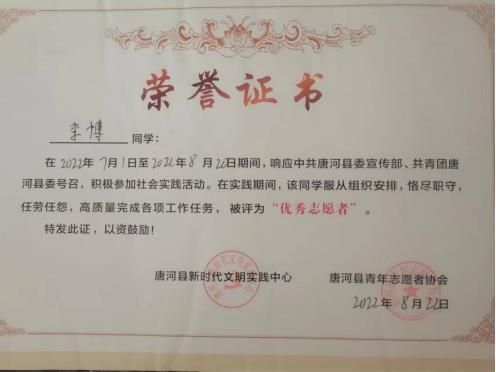 荣誉证书
李博 同学:
在 2022年7月1日至2022年8月22日期间,响应中共唐河县委宣传部、共青团唐
河县委号召,积极参加社会实践活动。在实践期间,该同学服从组织安排,恪尽职守,
任劳任怨,高质量完成各项工作任务,被评为“优秀志愿者”。
特发此证,以资鼓励!
唐河县新时代文明实践中心 唐河县青年志愿者协会
2022年8月22日